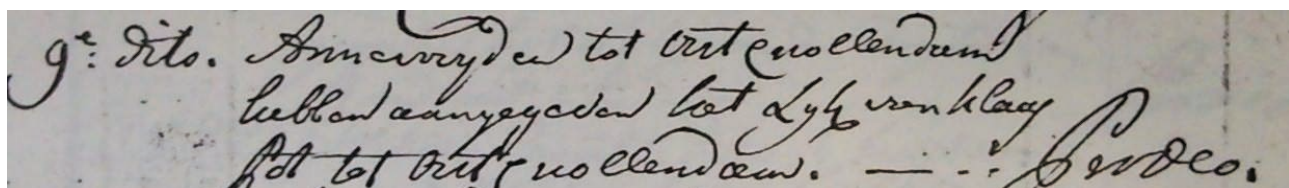 9e: dito. Armevoogden tot Oost Cnollendam
hebben aangegeven het Lyk van Klaas
Pot tot Oost Cnollendam. — .. Pro Deo.